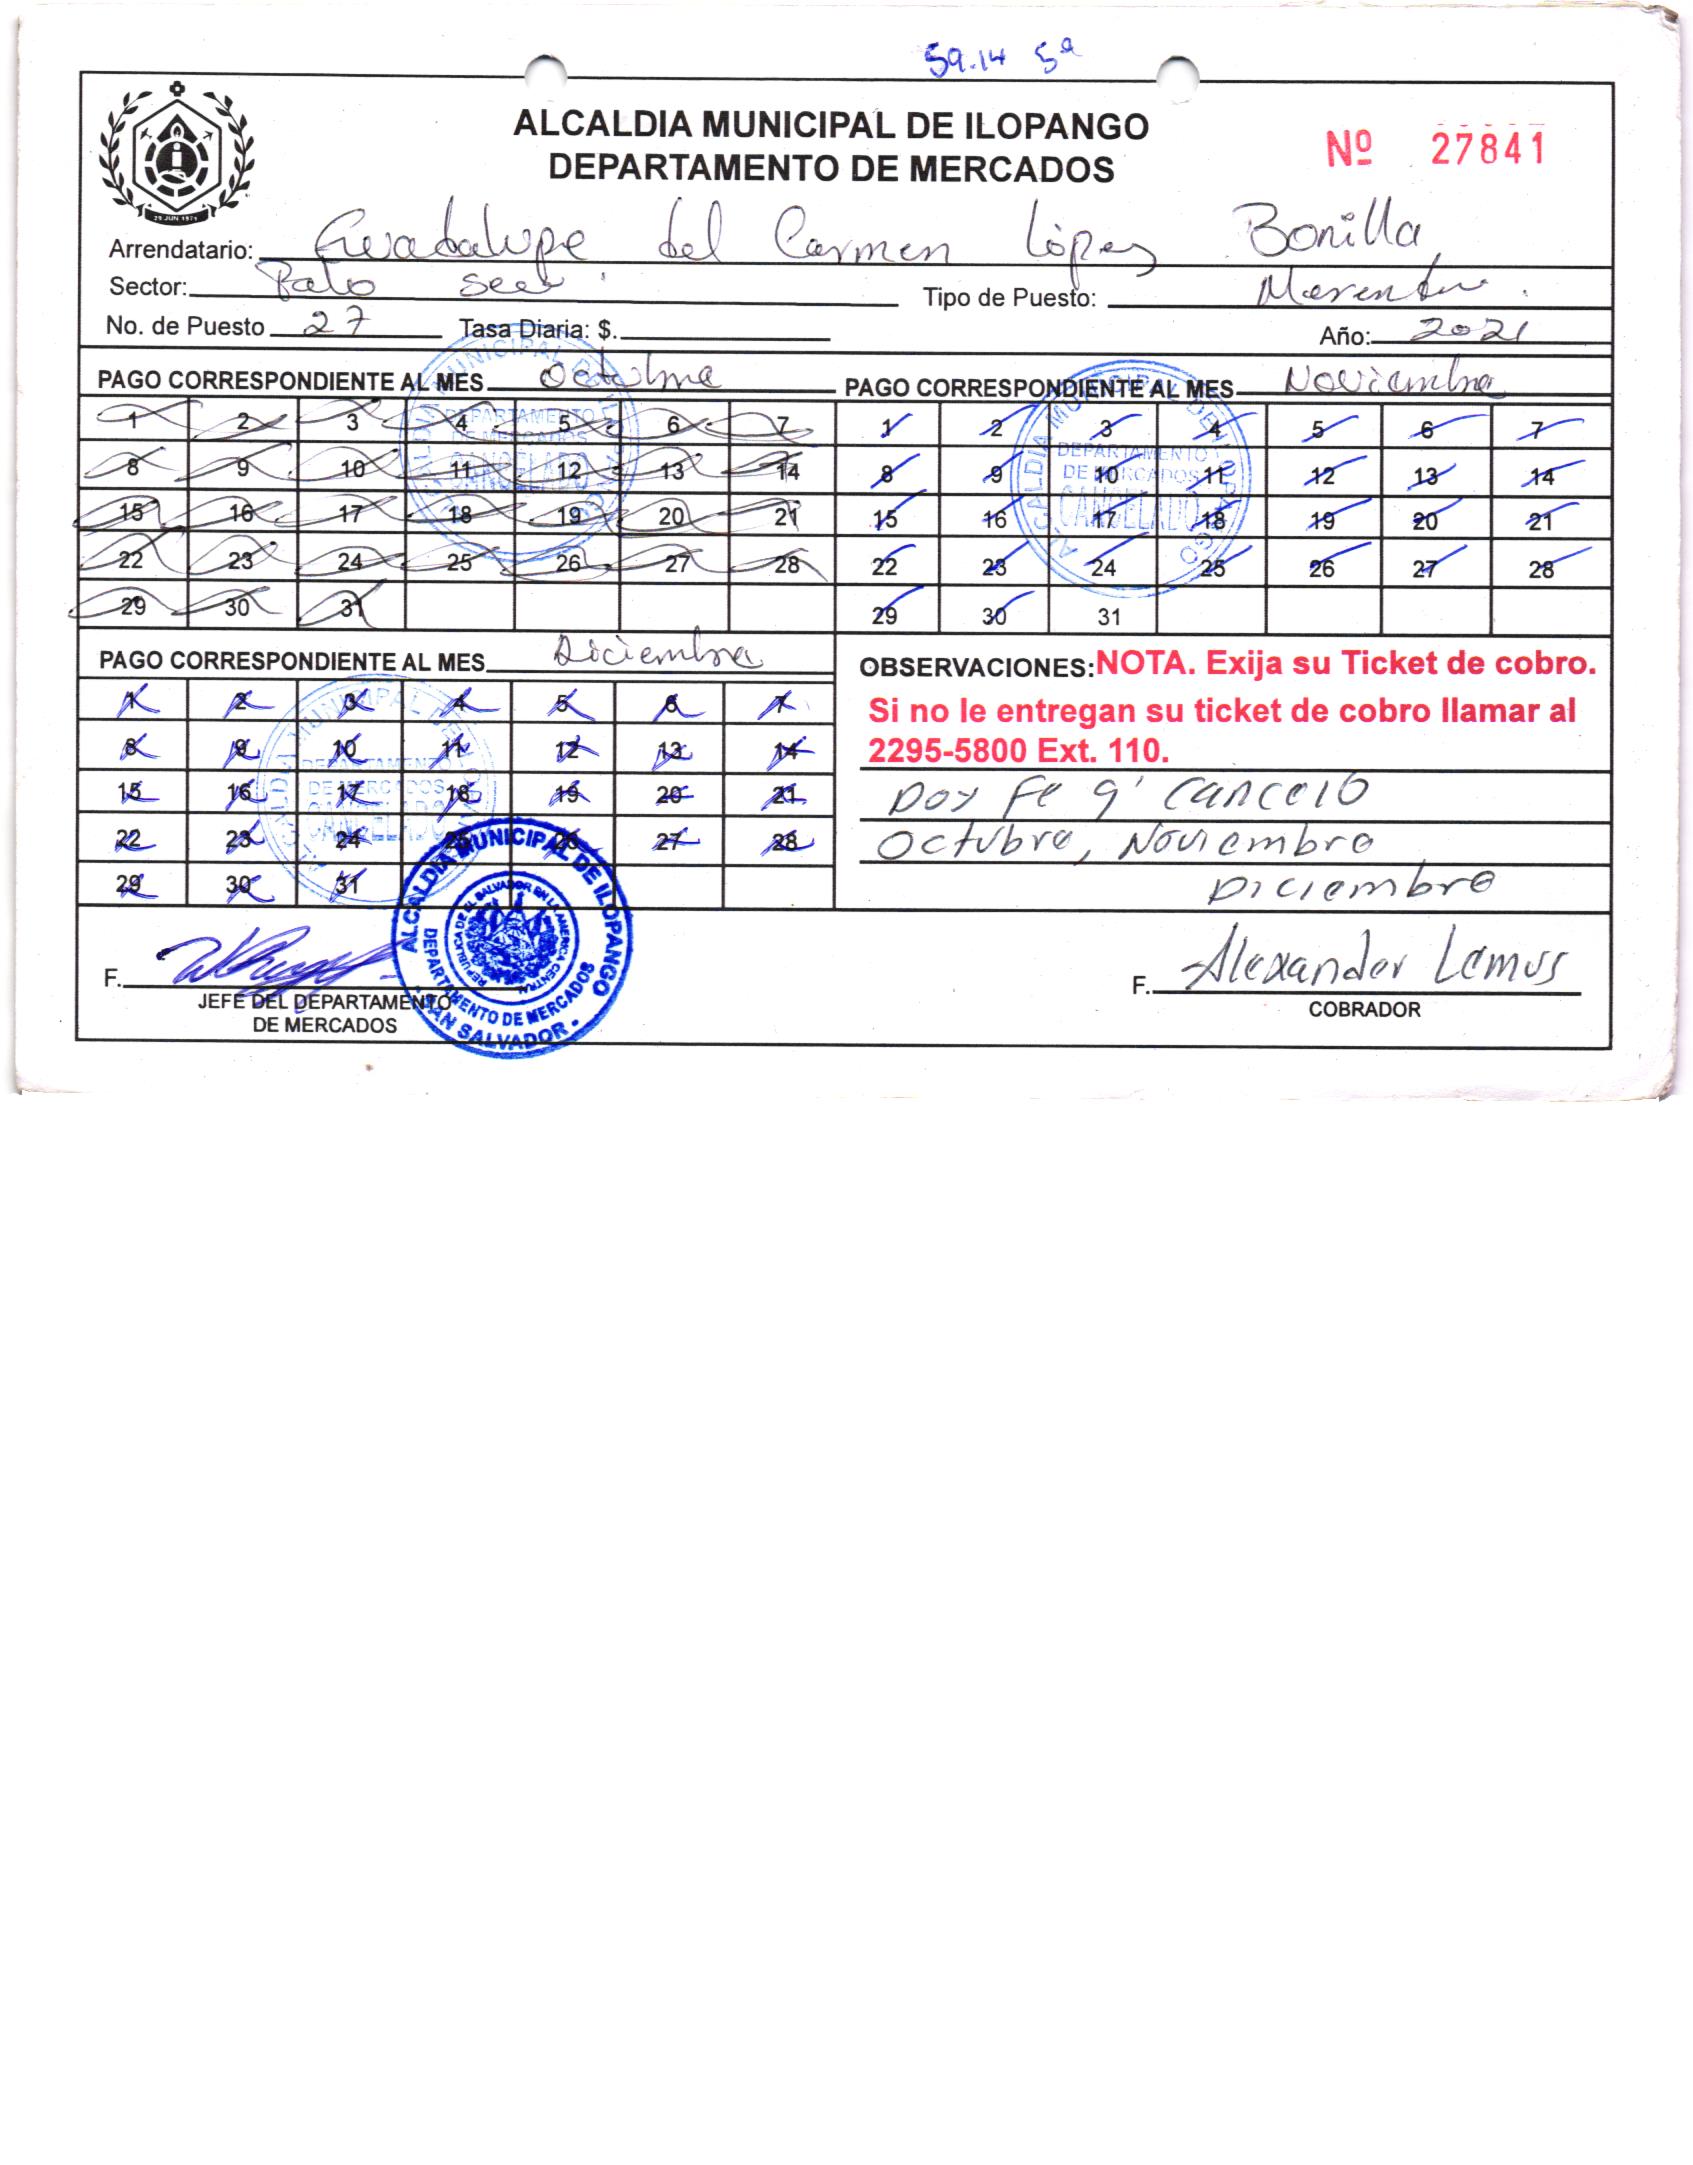 59.14 5ª
ALCALDIA MUNICIPAL DE ILOPANGO
DEPARTAMENTO DE MERCADOS
Nº 27841
25 JUN 1971
Arrendatario: Guadalupe del Carmen López Bonilla
Sector: Palo seco
Tipo de Puesto:
No. de Puesto 27 Tasa Diaria: $.
Año: 2021
PAGO CORRESPONDIENTE AL MES Octubre
1 2 3 4 5 6 7
8 9 10 11 12 13 14
15 16 17 18 19 20 21
22 23 24 25 26 27 28
29 30 31
ALCALDIA MUNICIPAL DE ILOPANGO
DEPARTAMENTO
DE MERCADOS
CANCELADO
PAGO CORRESPONDIENTE AL MES Noviembre
1 2 3 4 5 6 7
8 9 10 11 12 13 14
15 16 17 18 19 20 21
22 23 24 25 26 27 28
29 30 31
ALCALDIA MUNICIPAL DE ILOPANGO
DEPARTAMENTO
DE MERCADOS
CANCELADO
PAGO CORRESPONDIENTE AL MES Diciembre
1 2 3 4 5 6 7
8 9 10 11 12 13 14
15 16 17 18 19 20 21
22 23 24 25 26 27 28
29 30 31
ALCALDIA MUNICIPAL DE ILOPANGO
DEPARTAMENTO
DE MERCADOS
CANCELADO
OBSERVACIONES: NOTA. Exija su Ticket de cobro.
Si no le entregan su ticket de cobro llamar al
2295-5800 Ext. 110.
Doy Fe q' cancelo
Octubre, Noviembre
Diciembre
F.
JEFE DEL DEPARTAMENTO
DE MERCADOS
ALCALDIA MUNICIPAL DE ILOPANGO
REPUBLICA DE EL SALVADOR EN LA AMERICA CENTRAL
DEPARTAMENTO DE MERCADOS
SAN SALVADOR
F. Alexander Lemus
COBRADOR